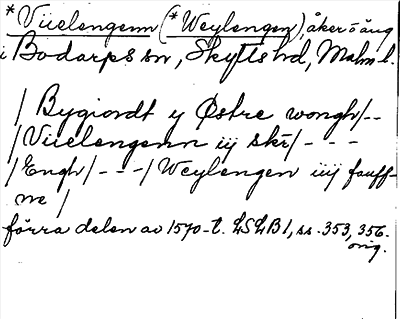 *Viielengenn (*Weylengen), åker o äng
i Bodarps sn, Skytts hd, Malm. l.
/ Bygiordt y Østre wongh/--
/Viielengenn iij skr/---
/Engh/---/Weylengen iiij fauff-
ne /
förra delen av 1570-t. LSLB1, ss. 353, 356.
orig.